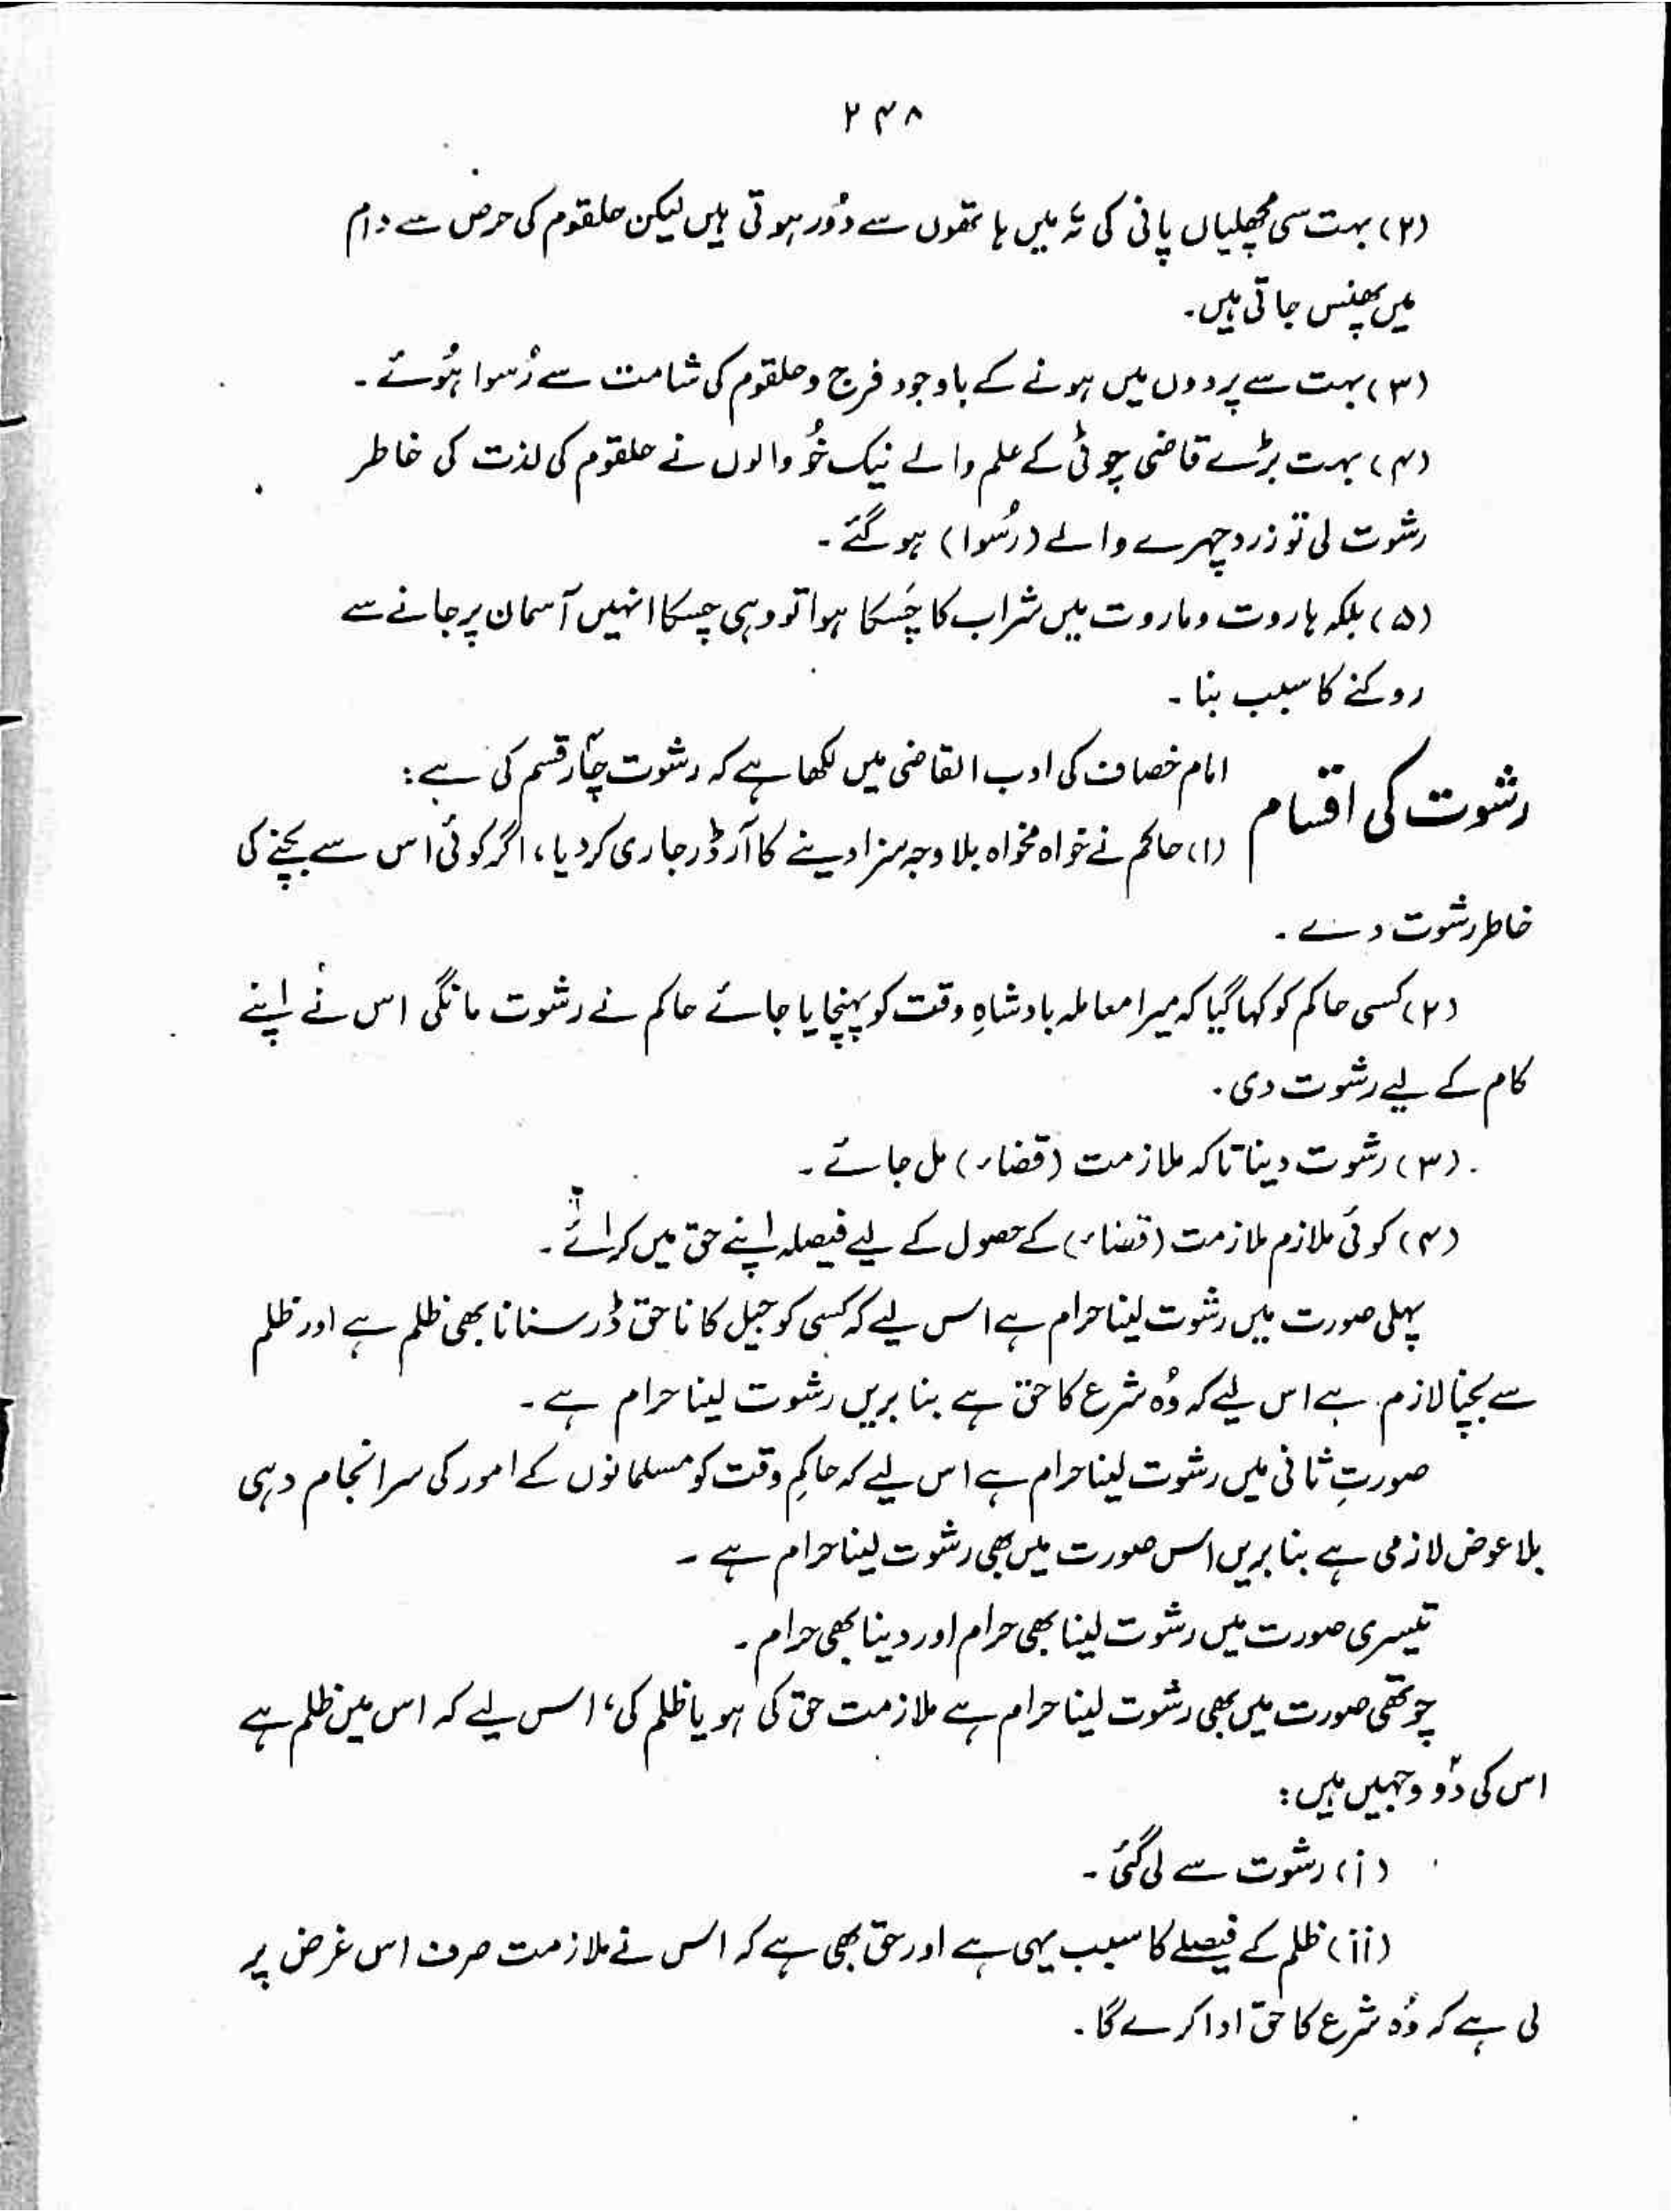 ۲۴۸
(۲) بہت سی مچھلیاں پانی کی تہ میں ہاتھوں سے دُور ہوتی ہیں لیکن حلقوم کی حرص سے دام
میں پھنس جاتی ہیں۔
(۳) بہت سے پردوں میں ہونے کے باوجود فرج و حلقوم کی شامت سے رُسوا ہُوئے۔
(۴) بہت بڑے قاضی چوٹی کے علم والے نیک خُو والوں نے حلقوم کی لذت کی خاطر
رشوت لی تو زرد چہرے والے (رُسوا) ہو گئے۔
(۵) بلکہ ہاروت و ماروت میں شراب کا چَسکا ہوا تو وہی چسکا انہیں آسمان پر جانے سے
روکنے کا سبب بنا۔
رشوت کی اقسام
امام خصاف کی ادب القاضی میں لکھا ہے کہ رشوت چار قسم کی ہے:
(۱) حاکم نے خواہ مخواہ بلا وجہ سزا دینے کا آرڈر جاری کر دیا، اگر کوئی اس سے بچنے کی
خاطر رشوت دے۔
(۲) کسی حاکم کو کہا گیا کہ میرا معاملہ بادشاہِ وقت کو پہنچایا جائے حاکم نے رشوت مانگی اس نے اپنے
کام کے لیے رشوت دی۔
(۳) رشوت دینا تاکہ ملازمت (قضاء) مل جائے۔
(۴) کوئی ملازم ملازمت (قضاء) کے حصول کے لیے فیصلہ اپنے حق میں کرائے۔
پہلی صورت میں رشوت لینا حرام ہے اس لیے کہ کسی کو جیل کا ناحق ڈر سنانا بھی ظلم ہے اور ظلم
سے بچنا لازم ہے اس لیے کہ وُہ شرع کا حق ہے بنا بریں رشوت لینا حرام ہے۔
صورتِ ثانی میں رشوت لینا حرام ہے اس لیے کہ حاکمِ وقت کو مسلمانوں کے امور کی سرانجام دہی
بلاعوض لازمی ہے بنا بریں اس صورت میں بھی رشوت لینا حرام ہے۔
تیسری صورت میں رشوت لینا بھی حرام اور دینا بھی حرام۔
چوتھی صورت میں بھی رشوت لینا حرام ہے ملازمت حق کی ہو یا ظلم کی، اس لیے کہ اس میں ظلم ہے
اس کی دو وجہیں ہیں:
(i) رشوت سے لی گئی۔
(ii) ظلم کے فیصلے کا سبب یہی ہے اور حق بھی ہے کہ اس نے ملازمت صرف اس غرض پر
لی ہے کہ وُہ شرع کا حق ادا کرے گا۔